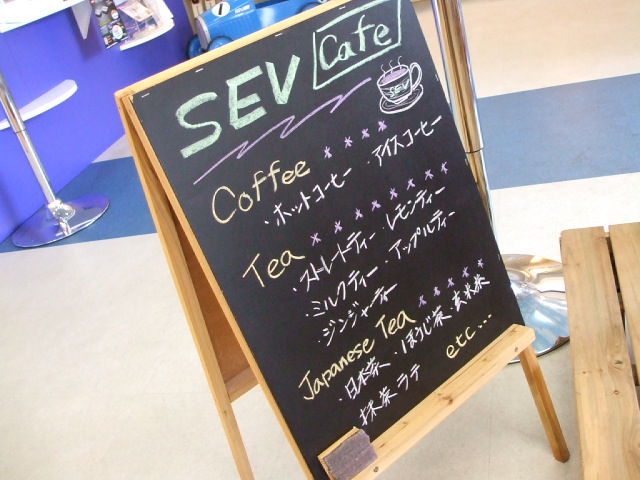 SEV Cafe
SEV
Coffee ****
・ホットコーヒー ・アイスコーヒー
Tea ********
・ストレートティー ・レモンティー
・ミルクティー ・アップルティー
・ジンジャーティー
Japanese Tea *****
・日本茶 ・ほうじ茶 ・玄米茶
・抹茶ラテ etc...